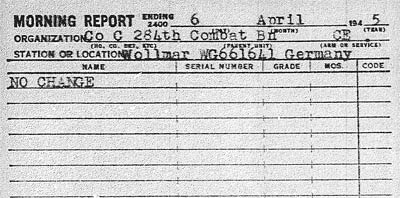 MORNING REPORT ENDING 2400 6 April 1945
(MONTH) (YEAR)
ORGANIZATION Co C 284th Combat Bn CE
(CO. REG. ETC) (PARENT UNIT) (ARM OR SERVICE)
STATION OR LOCATION Wollmar WG661641 Germany
NAME SERIAL NUMBER GRADE MOS. CODE
NO CHANGE